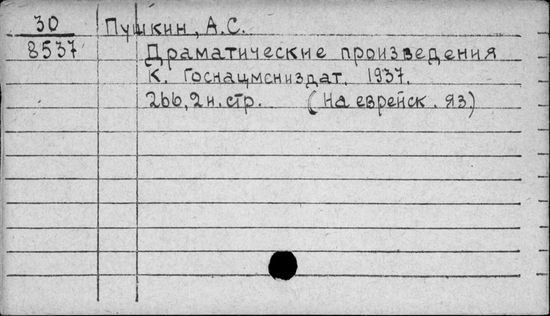 30 Пушкин, А.С.
8537 Драматические произведения
К. Госнацмсниздат. 1937.
266, 2 н. стр. (На еврейск. яз)